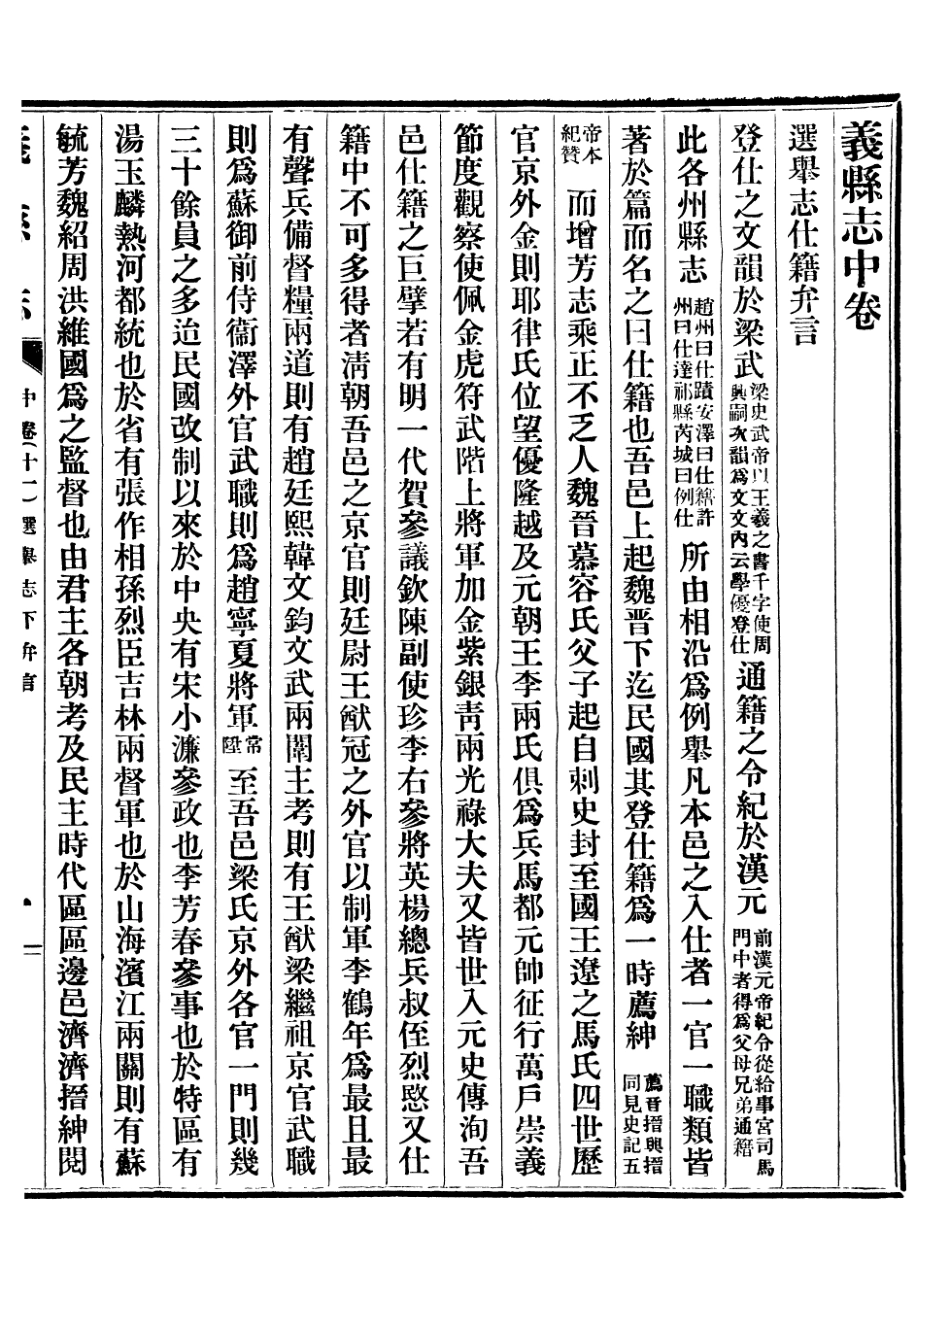 義縣志中卷
選舉志仕籍弁言
登仕之文韻於梁武梁史武帝以王羲之書千字使周興嗣次韻爲文文內云學優登仕通籍之令紀於漢元前漢元帝紀令從給事宮司馬門中者得爲父母兄弟通籍
此各州縣志趙州曰仕蹟安澤曰仕籍許州曰仕達祁縣芮城曰例仕所由相沿爲例舉凡本邑之入仕者一官一職類皆
著於篇而名之曰仕籍也吾邑上起魏晉下迄民國其登仕籍爲一時薦紳薦音搢與搢同見史記五
帝本紀贊而增芳志乘正不乏人魏晉慕容氏父子起自刺史封至國王遼之馬氏四世歷
官京外金則耶律氏位望優隆越及元朝王李兩氏俱爲兵馬都元帥征行萬戶崇義
節度觀察使佩金虎符武階上將軍加金紫銀靑兩光祿大夫又皆世入元史傳洵吾
邑仕籍之巨擘若有明一代賀參議欽陳副使珍李右參將英楊總兵叔侄烈愍又仕
籍中不可多得者淸朝吾邑之京官則廷尉王猷冠之外官以制軍李鶴年爲最且最
有聲兵備督糧兩道則有趙廷熙韓文鈞文武兩闈主考則有王猷梁繼祖京官武職
則爲蘇御前侍衞澤外官武職則爲趙寧夏將軍常陞至吾邑梁氏京外各官一門則幾
三十餘員之多迨民國改制以來於中央有宋小濂參政也李芳春參事也於特區有
湯玉麟熱河都統也於省有張作相孫烈臣吉林兩督軍也於山海濱江兩關則有蘇
毓芳魏紹周洪維國爲之監督也由君主各朝考及民主時代區區邊邑濟濟搢紳閱
義縣志 中卷(十一)選舉志下弁言 二